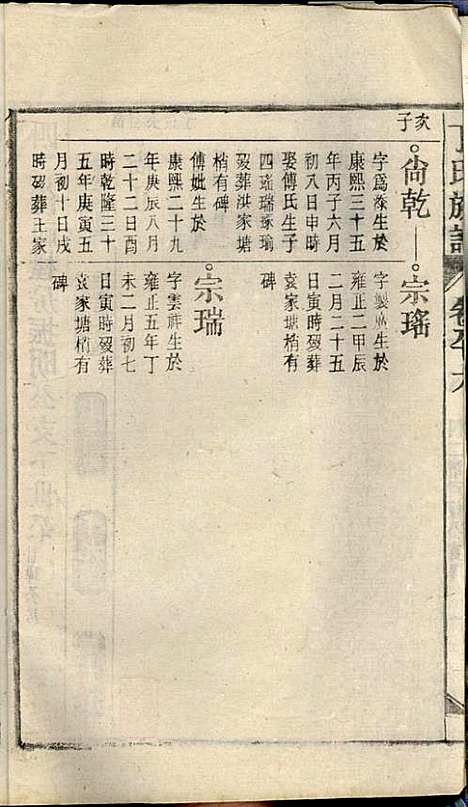 丁氏族譜
卷之六
亥子
尙乾
字爲滁生於
康熙三十五
年丙子六月
初八日申時
娶傅氏生子
四瑤瑞琢瑜
歿葬洪家塘
梢有碑
傅妣生於
康熙二十九
年庚辰八月
二十二日酉
時乾隆三十
五年庚寅五
月初十日戌
時歿葬王家
宗瑤
字製 生於
雍正二甲辰
二月二十五
日寅時歿葬
袁家塘梢有
碑
宗瑞
字雲 生於
雍正五年丁
未二月初七
日寅時歿葬
袁家塘梢有
碑